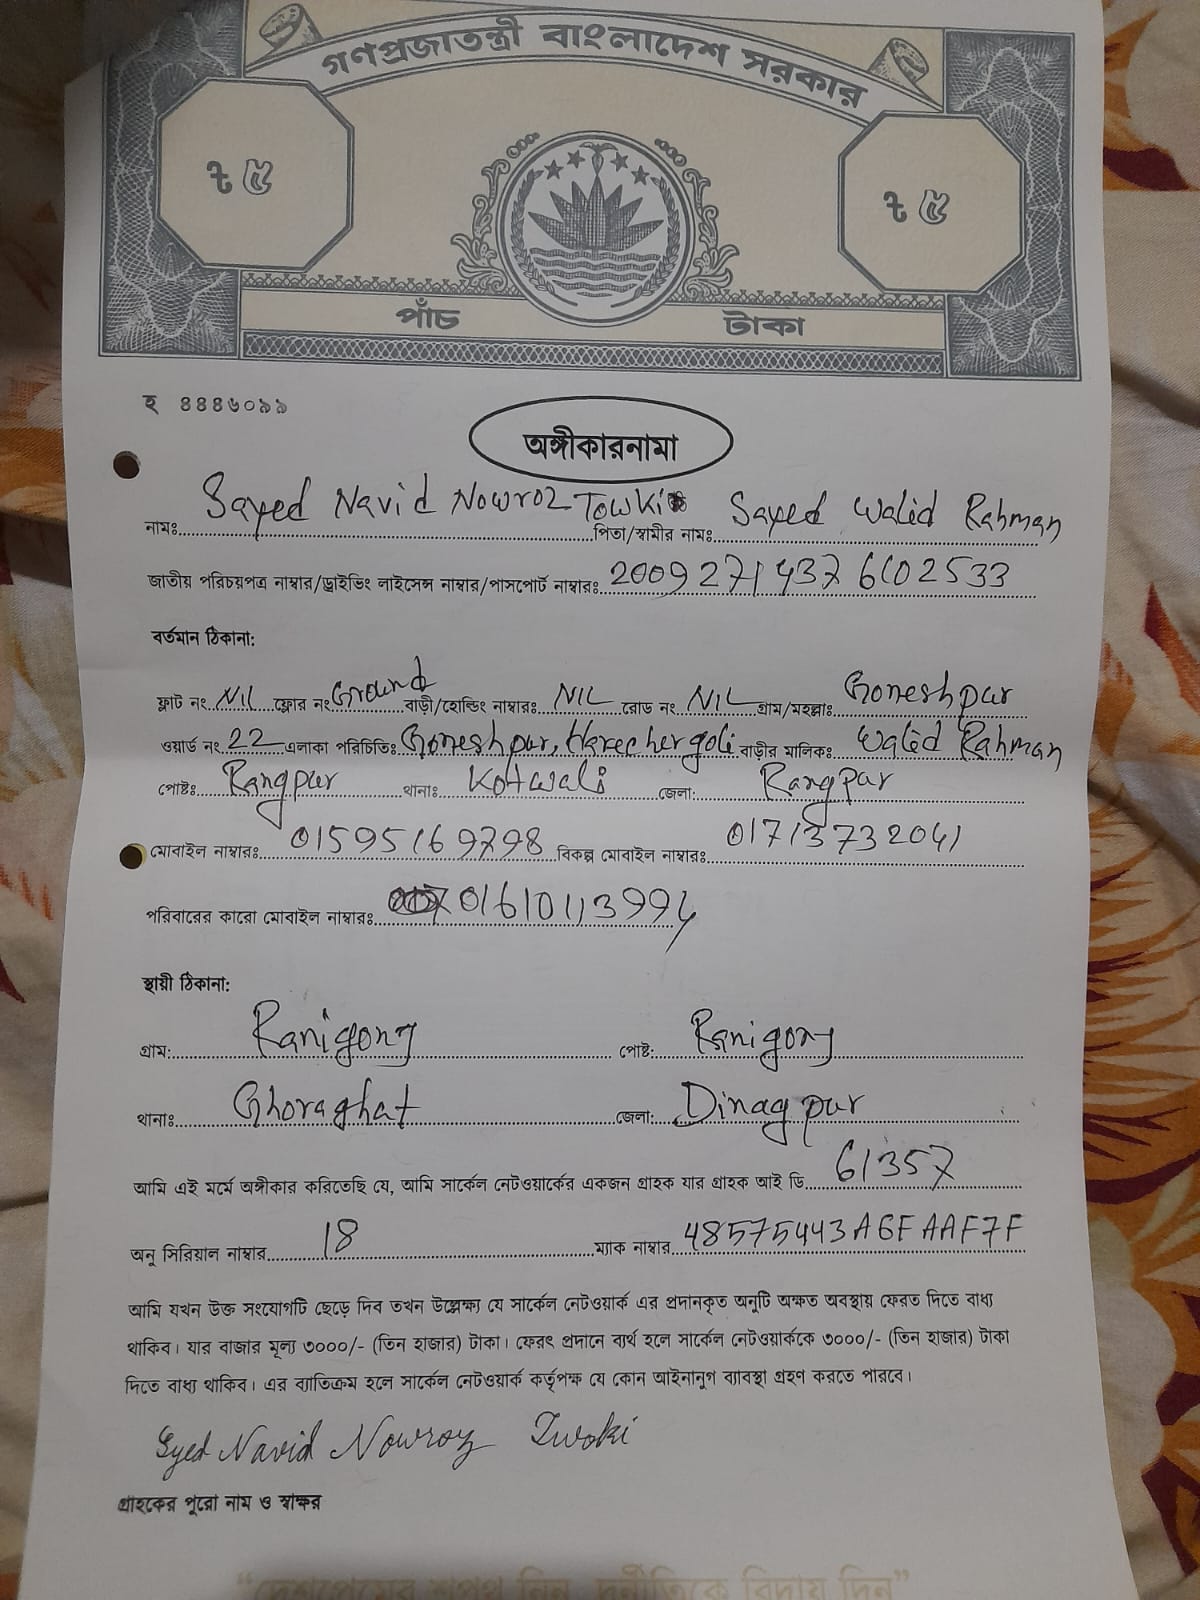 গণপ্রজাতন্ত্রী বাংলাদেশ সরকার
৳ ৫ ৳ ৫
পাঁচ টাকা
হ ৪৪৪৬০৯৯
অঙ্গীকারনামা
নামঃ Sayed Navid Nowroz Towki পিতা/স্বামীর নামঃ Sayed Walid Rahman
জাতীয় পরিচয়পত্র নাম্বার/ড্রাইভিং লাইসেন্স নাম্বার/পাসপোর্ট নাম্বারঃ
বর্তমান ঠিকানা:
ফ্লাট নং NIL ফ্লোর নং Ground বাড়ী/হোল্ডিং নাম্বারঃ NIL রোড নং NIL গ্রাম/মহল্লাঃ Goneshpur
ওয়ার্ড নং 22 এলাকা পরিচিতিঃ Goneshpur, বাড়ীর মালিকঃ Walid Rahman
পোষ্টঃ Rangpur থানাঃ Kotwali জেলা: Rangpur
মোবাইল নাম্বারঃ 01595169798 বিকল্প মোবাইল নাম্বারঃ 01713732041
পরিবারের কারো মোবাইল নাম্বারঃ
স্থায়ী ঠিকানা:
গ্রাম: Ranigonj পোষ্ট: Ranigonj
থানাঃ Ghoraghat জেলা: Dinagpur
আমি এই মর্মে অঙ্গীকার করিতেছি যে, আমি সার্কেল নেটওয়ার্কের একজন গ্রাহক যার গ্রাহক আই ডি 61357
অনু সিরিয়াল নাম্বার 18 ম্যাক নাম্বার 48575443A6FAAF7F
আমি যখন উক্ত সংযোগটি ছেড়ে দিব তখন উল্লেক্ষ্য যে সার্কেল নেটওয়ার্ক এর প্রদানকৃত অনুটি অক্ষত অবস্থায় ফেরত দিতে বাধ্য
থাকিব। যার বাজার মূল্য ৩০০০/- (তিন হাজার) টাকা। ফেরৎ প্রদানে ব্যর্থ হলে সার্কেল নেটওয়ার্ককে ৩০০০/- (তিন হাজার) টাকা
দিতে বাধ্য থাকিব। এর ব্যাতিক্রম হলে সার্কেল নেটওয়ার্ক কর্তৃপক্ষ যে কোন আইনানুগ ব্যাবস্থা গ্রহণ করতে পারবে।
Syed Navid Nowroz Twoki
গ্রাহকের পুরো নাম ও স্বাক্ষর
“দেশপ্রেমের শপথ নিন, দুর্নীতিকে বিদায় দিন”